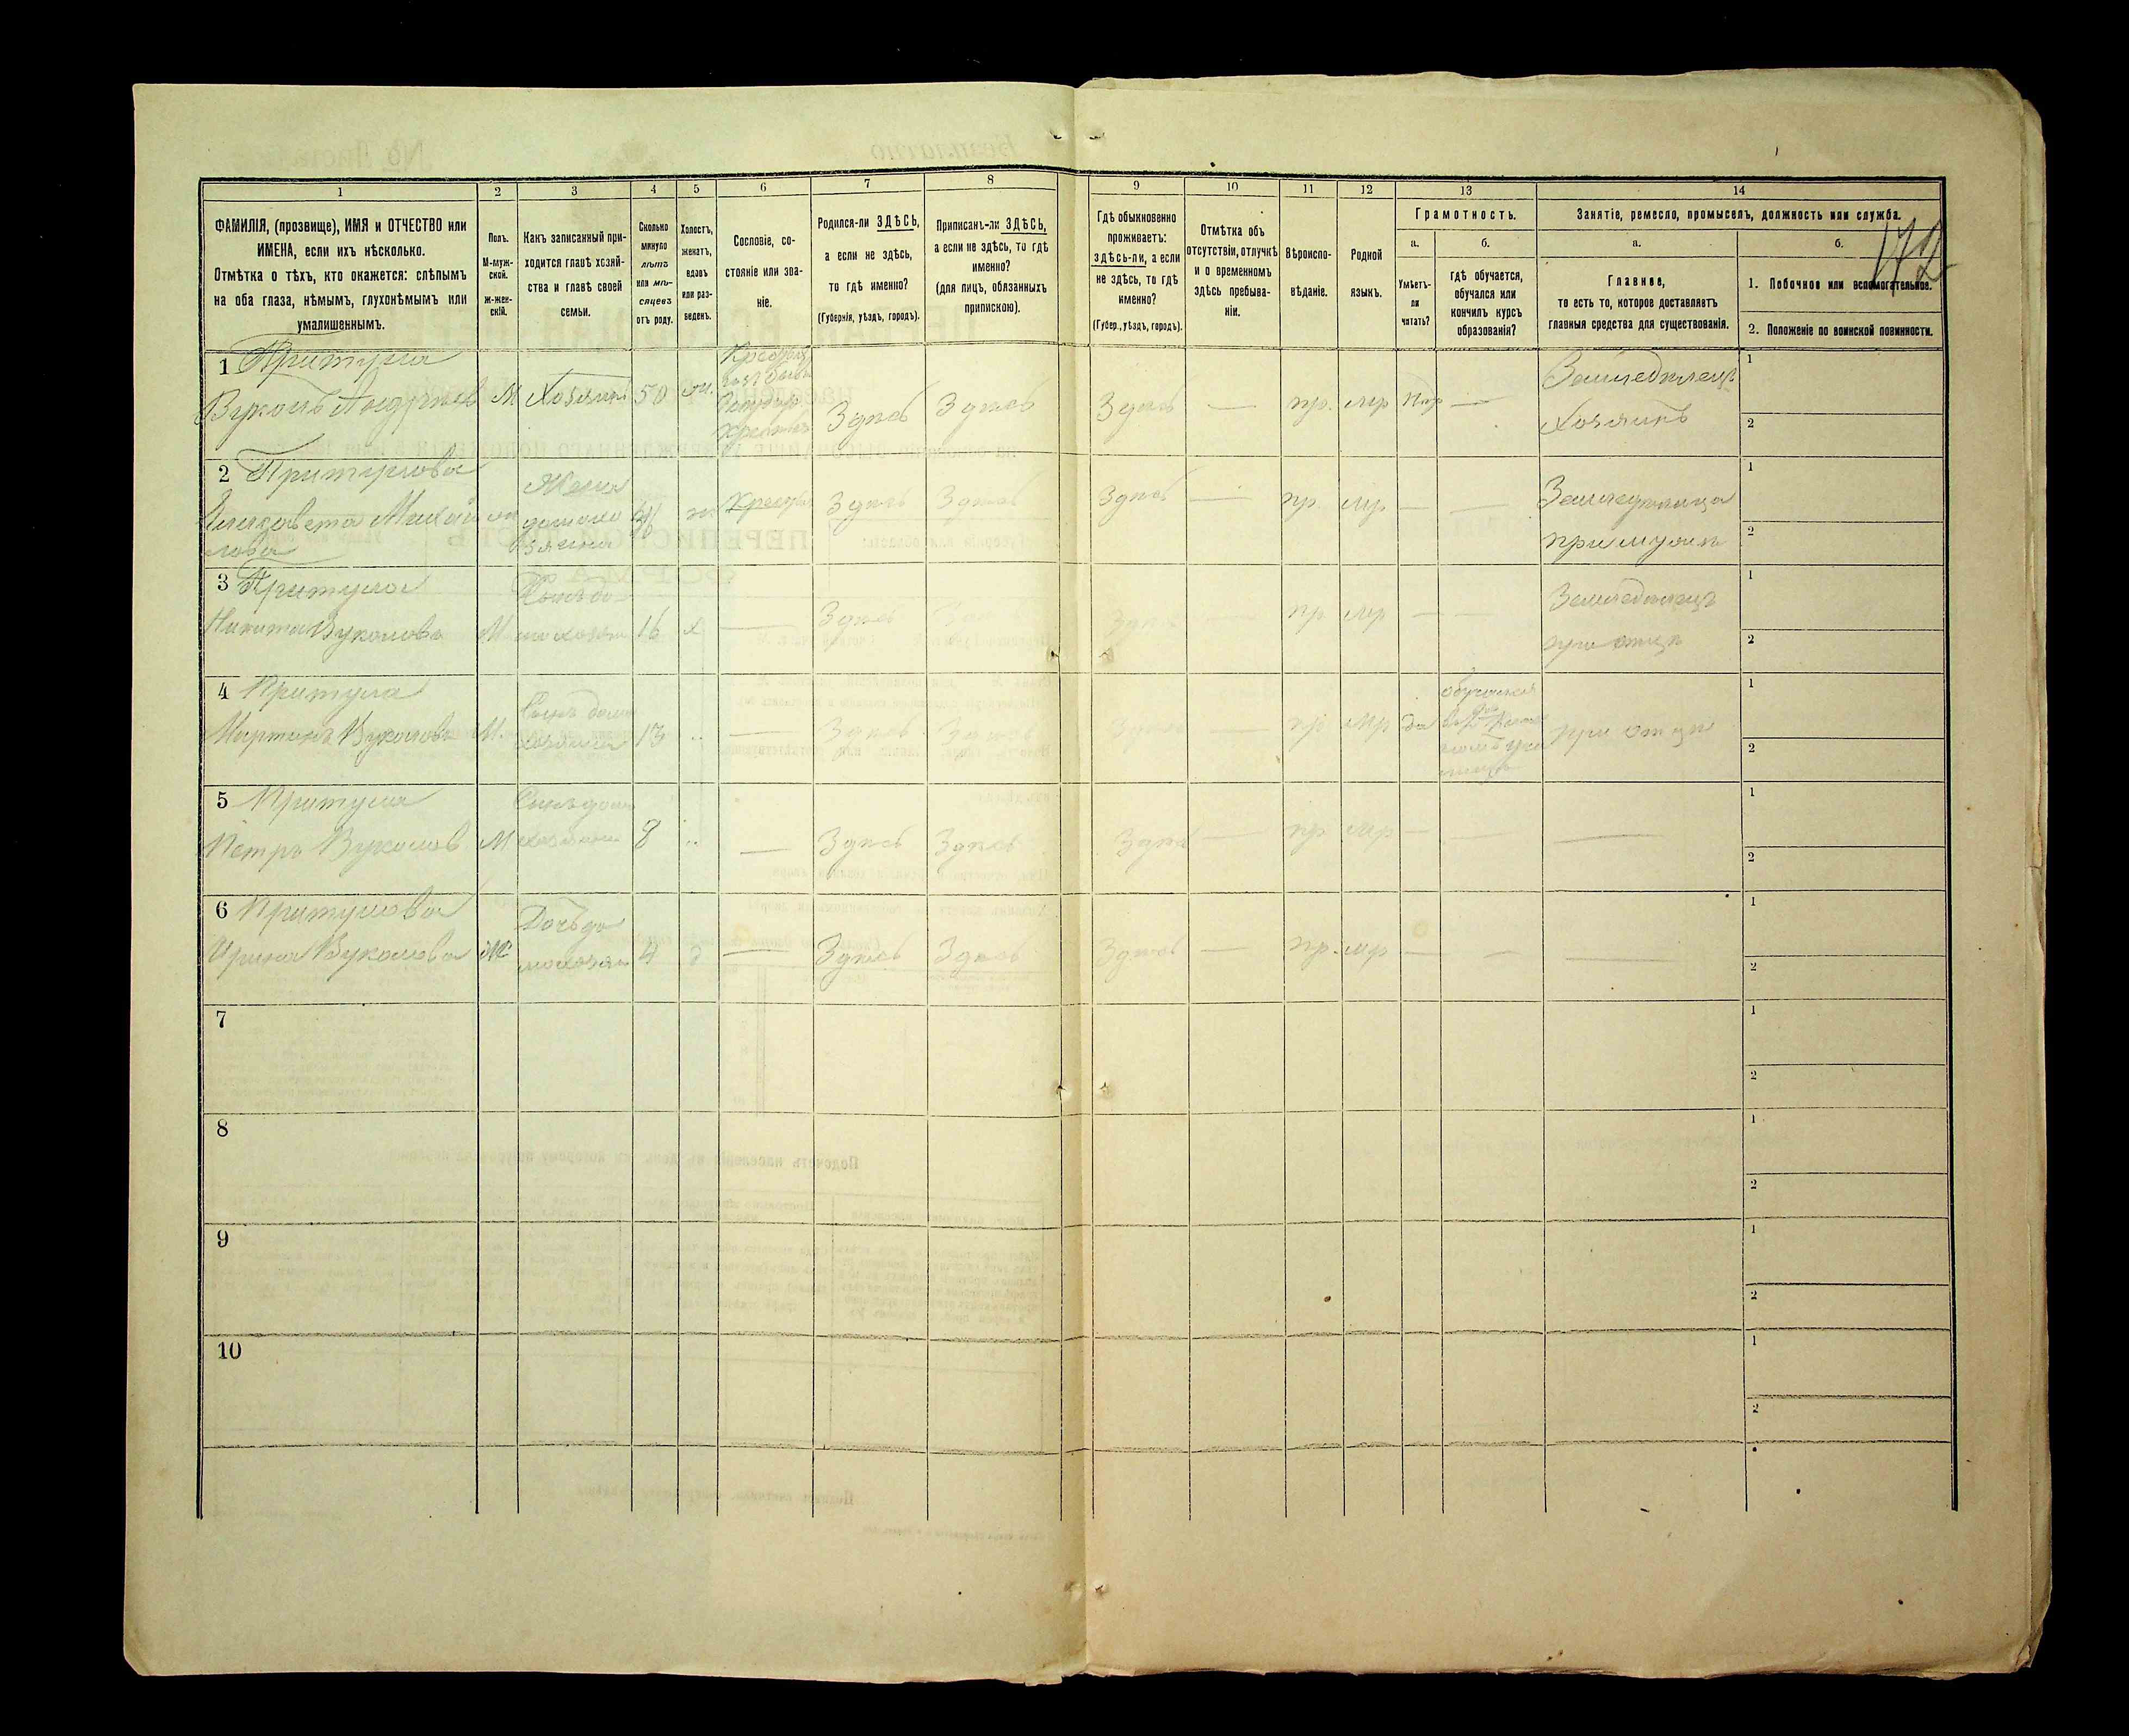 1
2
3
4
5
6
7
8
9
10
11
12
13
14
ФАМИЛІЯ, (прозвище), ИМЯ и ОТЧЕСТВО или
ИМЕНА, если ихъ нѣсколько.
Отмѣтка о тѣхъ, кто окажется: слѣпымъ
на оба глаза, нѣмымъ, глухонѣмымъ или
умалишеннымъ.
Полъ.
М-муж-
ской.
ж-жен-
скій.
Какъ записанный при-
ходится главѣ хозяй-
ства и главѣ своей
семьи.
Сколько
минуло
лѣтъ
или мѣ-
сяцевъ
отъ роду.
Холостъ,
женатъ,
вдовъ
или раз-
веденъ.
Сословіе, со-
стояніе или зва-
ніе.
Родился-ли ЗДѢСЬ,
а если не здѣсь,
то гдѣ именно?
(Губернія, уѣздъ, городъ).
Приписанъ-ли ЗДѢСЬ,
а если не здѣсь, то гдѣ
именно?
(для лицъ, обязанныхъ
припискою).
Гдѣ обыкновенно
проживаетъ:
здѣсь-ли, а если
не здѣсь, то гдѣ
именно?
(Губер., уѣздъ, городъ).
Отмѣтка объ
отсутствіи, отлучкѣ
и о временномъ
здѣсь пребыва-
ніи.
Вѣроиспо-
вѣданіе.
Родной
языкъ.
Грамотность.
а.
б.
Умѣетъ-
ли
читать?
гдѣ обучается,
обучался или
кончилъ курсъ
образованія?
Занятіе, ремесло, промыселъ, должность или служба.
а.
б.
Главное,
то есть то, которое доставляетъ
главныя средства для существованія.
1. Побочное или вспомогательное.
2. Положеніе по воинской повинности.
172
1 Притула
М Хозяинъ 50 Здѣсь Здѣсь Здѣсь — пр. мр —
Земледѣлецъ
Хозяинъ
1
2
2 Притулова
Елизавета Михай
лова
Жена
домохо
зяина
Здѣсь Здѣсь Здѣсь — пр. мр. — —
при мужѣ
1
2
3 Притула
Никита Вуколовъ М 16 х — Здѣсь — пр мр — —
Земледѣлецъ
при отцѣ
1
2
4 Притула
Мартинъ Вуколовъ М.
Сынъ домо
хозяина 13 — Здѣсь Здѣсь Здѣсь — пр мр да
при отцѣ
1
2
5 Притула
Петръ Вуколовъ М
Сынъ домо
хозяина 8 — Здѣсь Здѣсь Здѣсь — пр мр — — —
1
2
6 Притулова
Ирина Вуколова Ж
Дочь до
мохозяи 4 — Здѣсь Здѣсь Здѣсь — пр. мр — — —
1
2
7
1
2
8
1
2
9
1
2
10
1
2